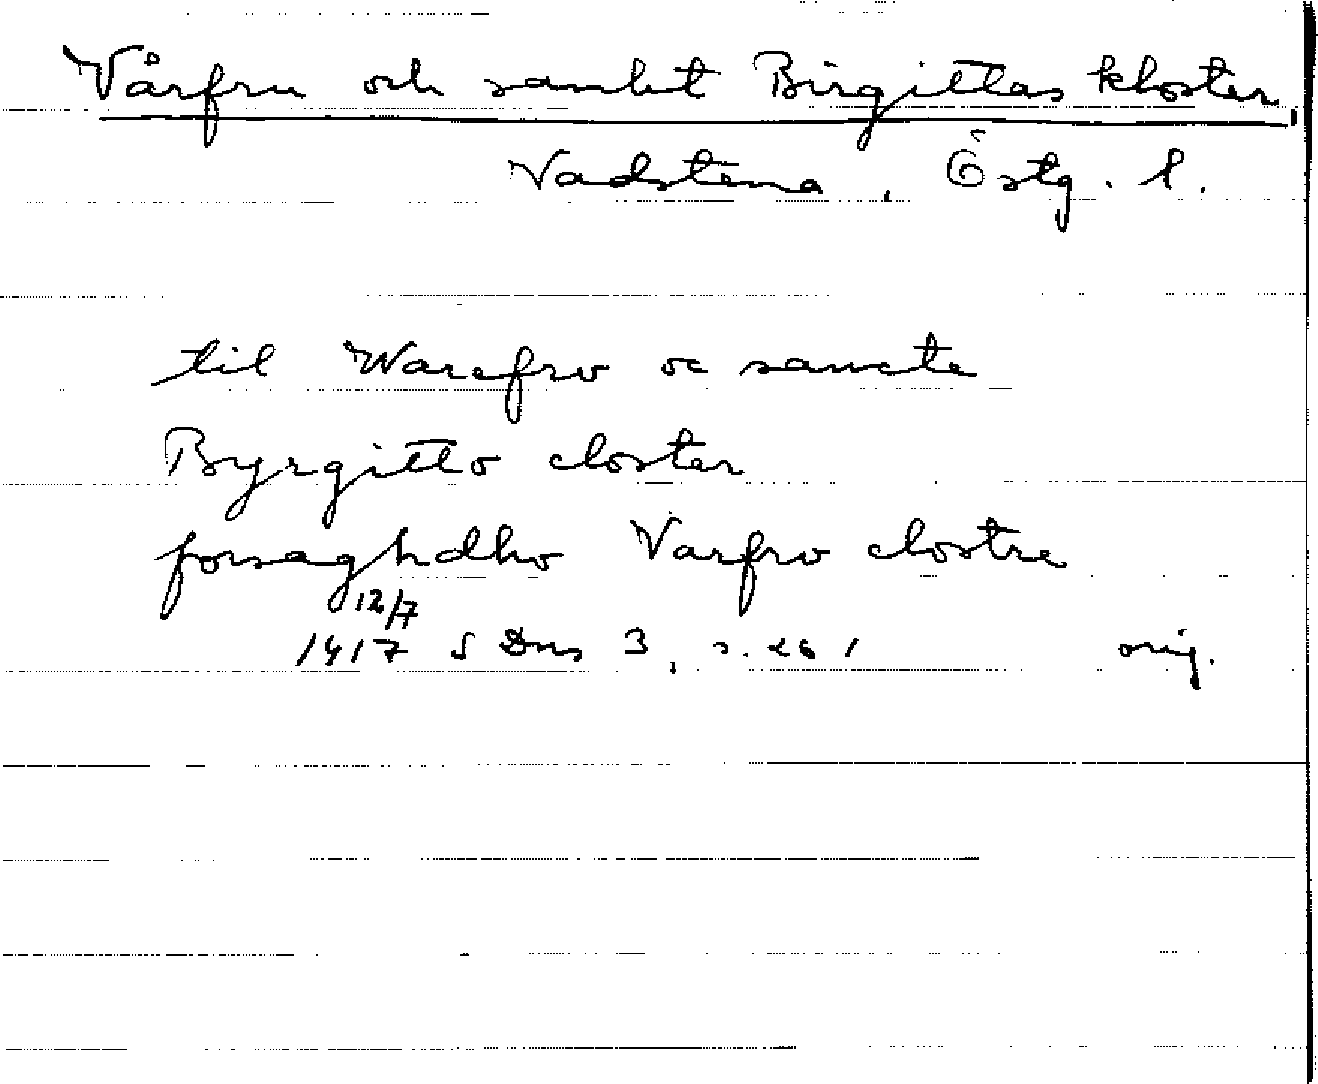 Vårfru och sankt Birgittas kloster,
Vadstena, Östg. l.
til Warefrv oc sancte
Byrgitto closter
forsaghdho Varfrv clostre
12/7
1417 S Dns 3, s. 261 orig.